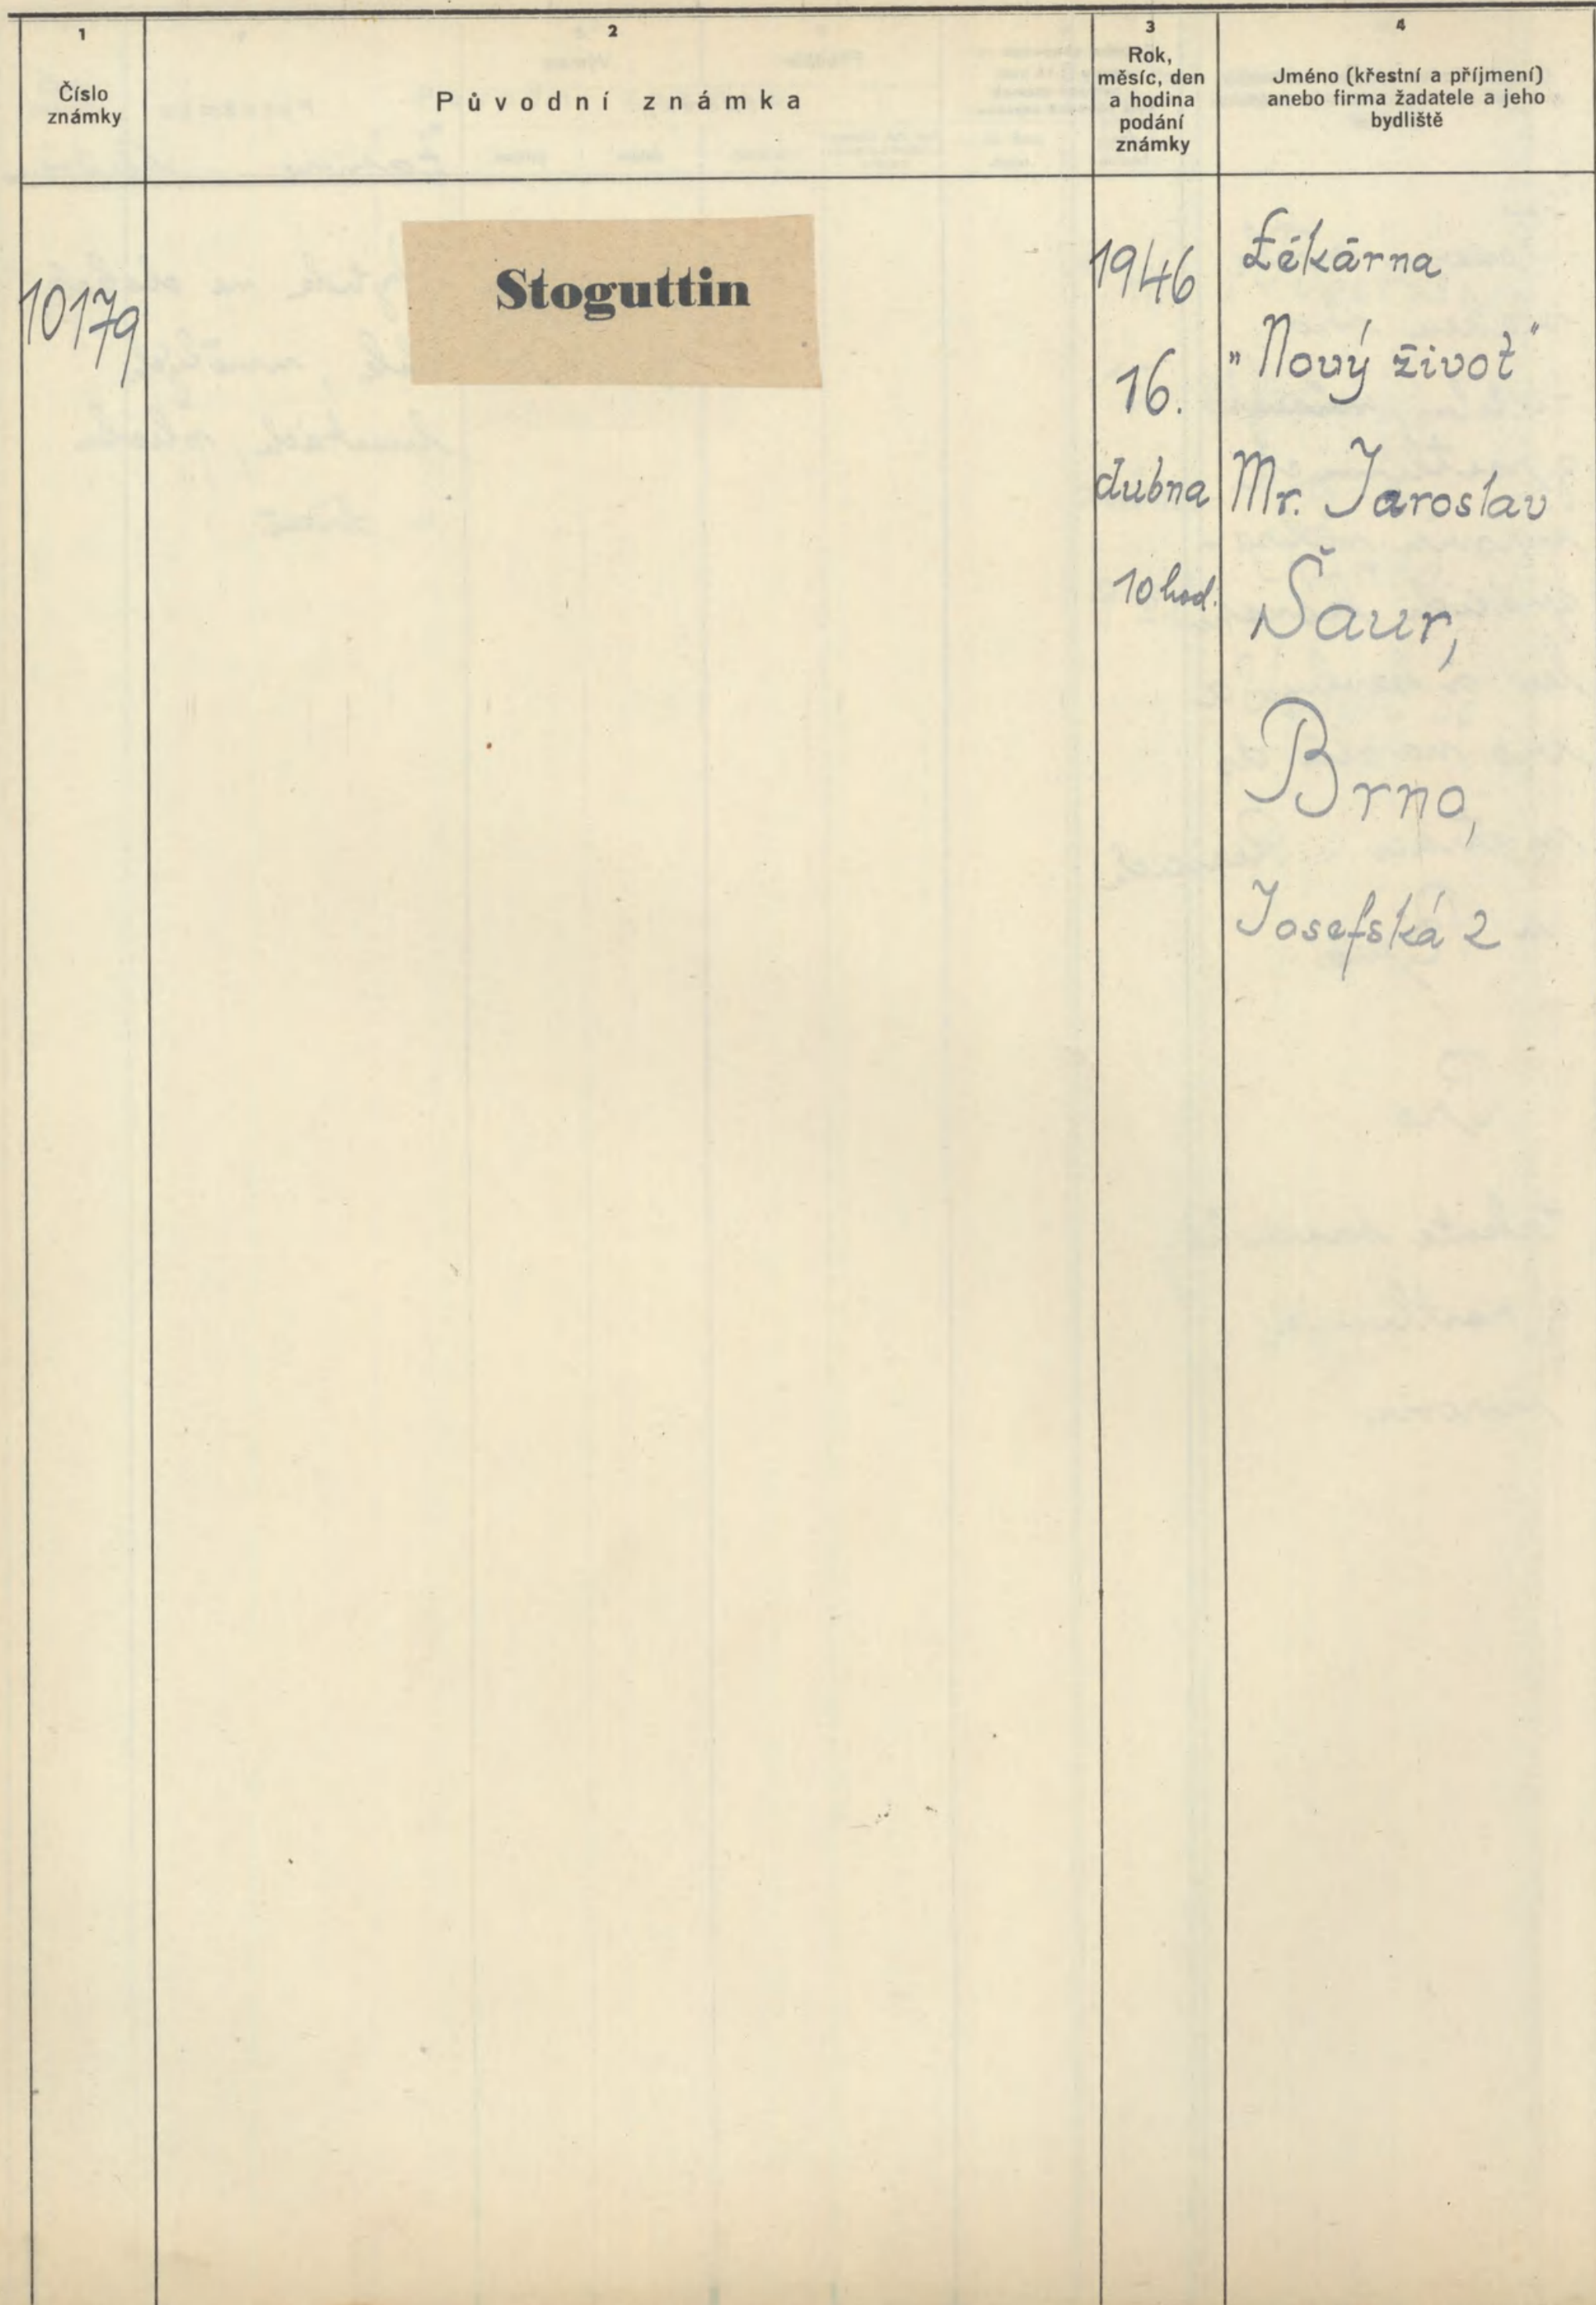 1
Číslo
známky
2
Původní známka
3
Rok,
měsíc, den
a hodina
podání
známky
4
Jméno (křestní a příjmení)
anebo firma žadatele a jeho
bydliště
10179
Stoguttin
1946
16.
dubna
10 hod.
Lékárna
„Nový život"
Mr. Jaroslav
Šaur,
Brno,
Josefská 2